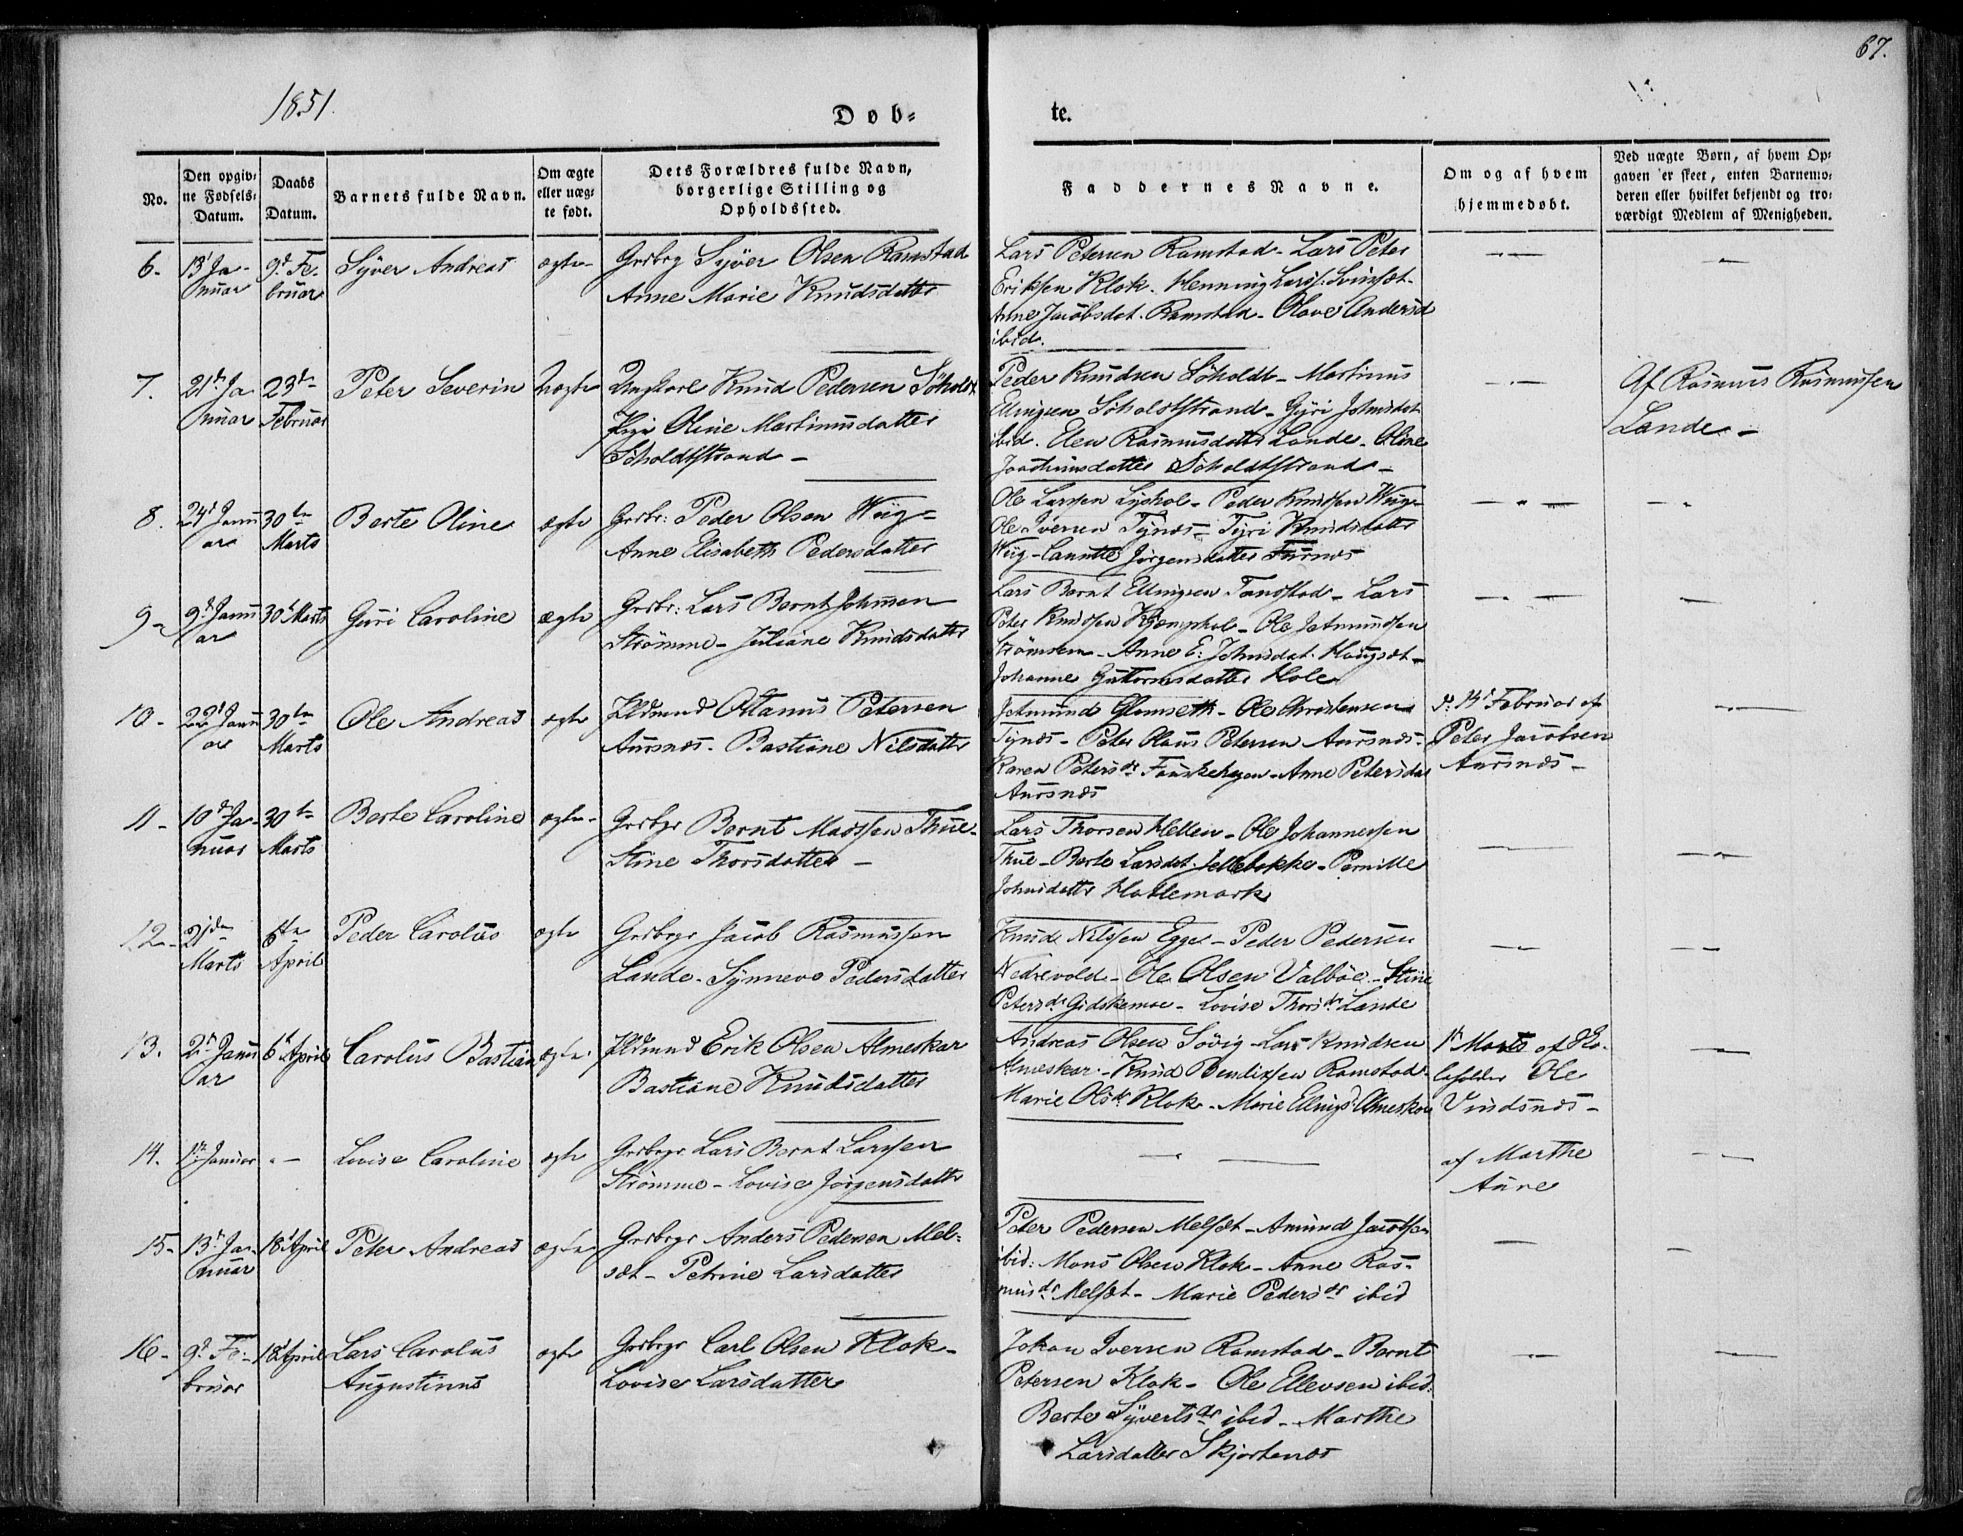 1851.
67.
Døb-
te.
No.
Den opgiv-
ne Fødsels-
Datum.
Daabs
Datum.
Barnets fulde Navn.
Om ægte
eller uæg-
te født.
Dets Forældres fulde Navn,
borgerlige Stilling og
Opholdssted.
Faddernes Navne.
Om og af hvem
hjemmedøbt.
Ved uægte Børn, af hvem Op-
gaven er skeet, enten Barnemo-
deren eller hvilket bekjendt og tro-
værdigt Medlem af Menigheden.
6.
13 Ja-
nuar
9d Fe-
bruar
Syver Andreas
ægte
Grdbrg Syver Olsen Ramstad
Anne Marie Knudsdatter
Lars Petersen Ramstad - Lars Peter
Eriksen Klok. Henning Larss: Svinsæt -
Anne Jacobsdat. Ramstad - Olave Andersd
ibid.
7.
21d Ja
nuar
23d
Februar
Peter Severin
Uægte
Ungkarl Knud Pedersen Søholt
Pige Oline Martinusdatter
Søholdtstrand -
Peder Knudsen Søholdt - Martinus
Ellingsen Søholdtstrand - Gyri Johnsdat
ibid. Elen Rasmusdatter Lande - Oline
Joachimsdatter Søholdtstrand -
Af Rasmus Rasmussen
Lande -
8.
24d Janu
ar
30te
Marts
Berte Oline
ægte
Grdbr: Peder Olsen Wiig -
Anne Elisabeth Pedersdatter
Ole Larsen Lyshol - Peder Knudsen Wiig -
Ole Iversen Tynæs - Gyri Knudsdatter
Wiig - Jørgensdatter Furnæs
9 -
9d Janu
ar
30 Marts
Guri Caroline
ægte
Grdbr: Lars Bernt Johnsen
Strømme - Juliane Knudsdatter
Lars Bernt Ellingsen Tandstad - Lars
Peter Knudsen Kjemphol - Ole Jetmundsen
Strømsem - Anne E: Johnsdat. Haugsæt -
Johanne Guttormsdatter Hole
10 -
22d Janu
ar
30te
Marts
Ole Andreas
ægte
Huusmd Ottanus Petersen
Aursnæs - Bastiane Nilsdatter
Jetmund Glomseth - Ole Christensen
Tynæs - Peter Olaus Petersen Aursnæs -
Karen Petersdr Fauskehagen - Anne Petersdat
Aursnæs
d: 14d Februar af
Peter Jacobsen
Aursnæs -
11 -
10d Ja-
nuar
30te
Marts
Berte Caroline
ægte
Grdbgr Bernt Madsen Thue -
Stine Thorsdatter -
Lars Thorsen Hellen - Ole Johannesen
Thue - Berte Larsdat. Jellebakke - Pernille
Johnsdatter Hatlemark
12 -
21de
Marts
6te
April
Peder Carolus
ægte
Grdbrgr Jacob Rasmussen
Lande - Synneve Pedersdatter
Knud Nilssen Egge - Peder Pedersen
Nedrevold - Ole Olsen Valbøe - Stine
Petersdr Gidskemoe - Lovise Thorsdr Lande
13.
2d Janu
ar
6d April
Carolus Bastian
ægte
Huusmd Erik Olsen Almeskar
Bastiane Knudsdatter
Andreas Olsen Søvig - Lars Knudsen
Almeskar - Knud Bendixsen Ramstad -
Marie Olsdr Klok - Marie Ellingsd: Almeskar
1d Marts af
Ole
Vindsnæs -
14.
1d Januar
Lovise Caroline
ægte
Grdbrgr Lars Bernt Larssen
Strømme - Lovise Jørgensdatter
af Marthe
Aure
15 -
13d Ja-
nuar
18d April
Peter Andreas
ægte
Grdbrgr Anders Pedersen Mel-
sæt - Petrine Larsdatter
Peter Pedersen Melsæt - Amund Jacobsen
ibid: Mons Olsen Klok - Anne Ras-
musdr Melsæt - Marie Pedersdr ibid
16 -
9d Fe-
bruar
18d April
Lars Carolus
Augustinus
ægte
Grdbrgr Carl Olsen Klok -
Lovise Larsdatter
Johan Iversen Ramstad - Bernt
Petersen Klok - Ole Ellevsen ibid:
Berte Syvertsdr ibid - Marthe
Larsdatter Skjortenæs